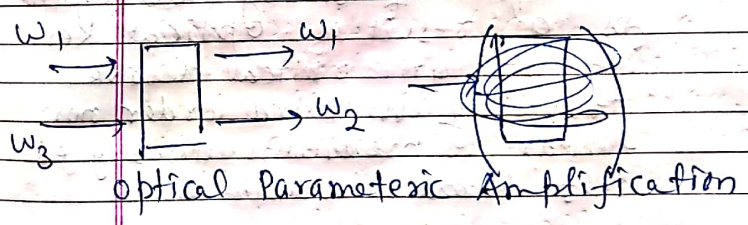 ω₁ ω₁
ω₃ ω₂
Optical Parameteric Amplification